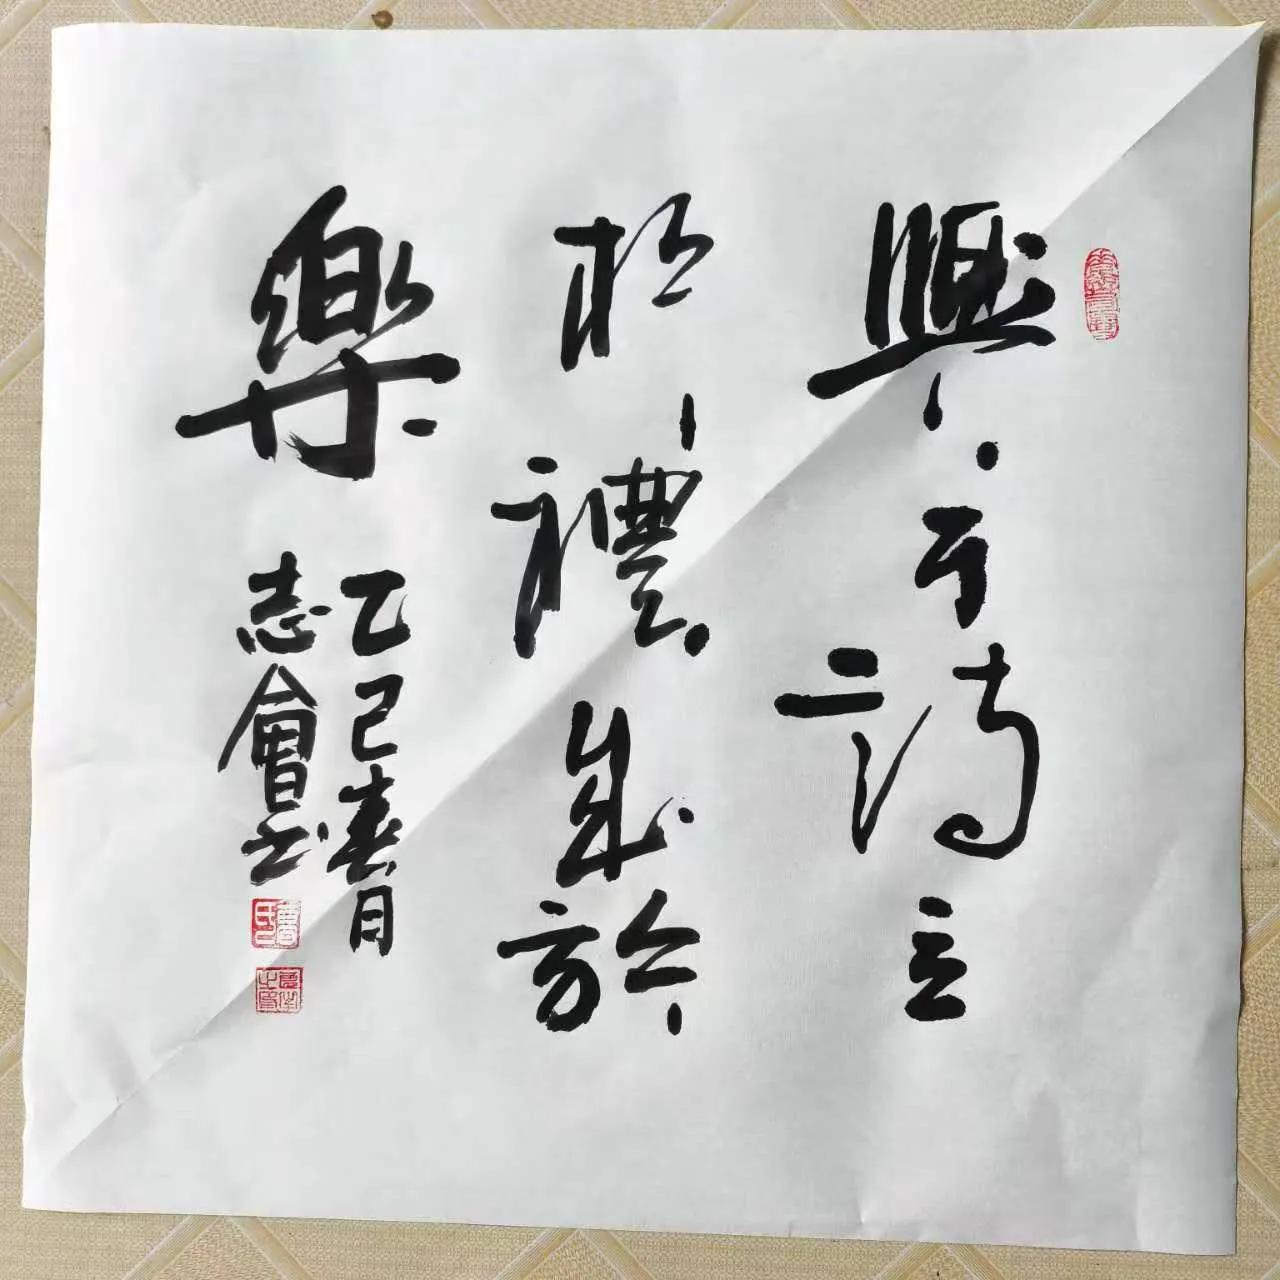 興于詩立
於禮成於
樂
乙巳春月
志會書